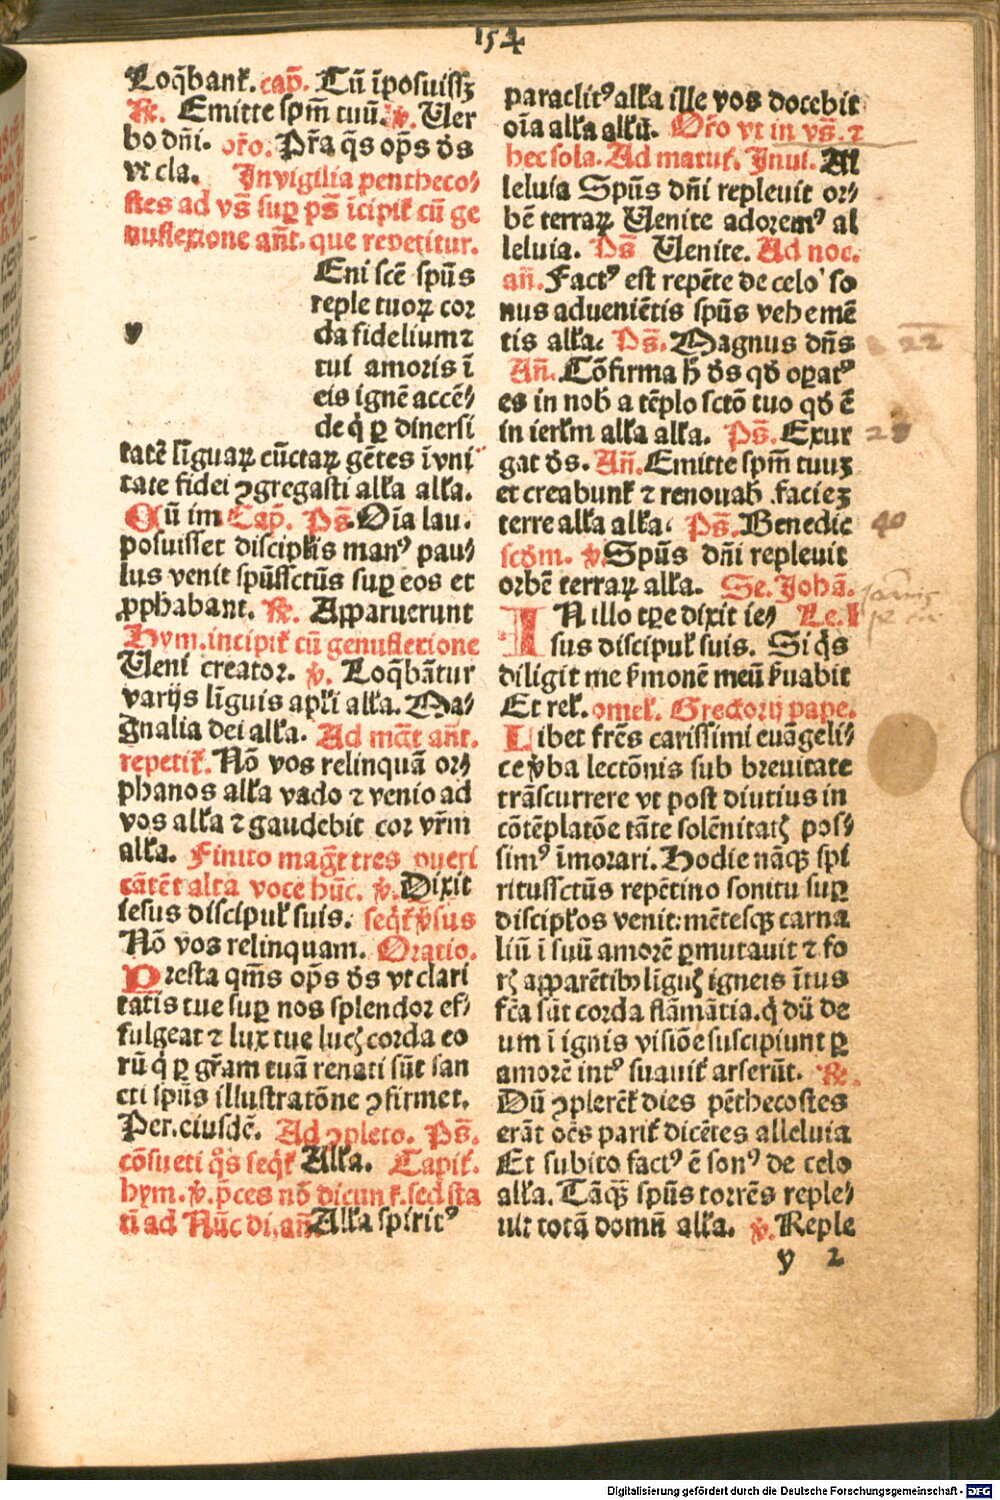 154
Loq̄banť. cap̄. Cū īposuisſꝫ
℟. Emitte spm̄ tuū. ℣. Uer
bo dn̄i. or̄o. Pr̄a q̄s op̄s ds̄
vt cla. In vigilia pentheco⸗
stes ad vs̄ suꝑ ps̄ īcipiť cū ge
nuflexione an̄t. que repetitur.
Eni scē spūs
reple tuoꝝ cor
v da fidelium ⁊
tui amoris ī
eis ignē accē⸗
de q̇ ꝑ diuersi
tatē līguaꝝ cūctaꝝ gētes ī vni
tate fidei ꝯgregasti alła alła.
Cū im Cap̄. Ps̄. Oīa lau.
posuisset discipľis manꝰ pau⸗
lus venit spūssctūs suꝑ eos et
ꝓphabant. ℟. Apparuerunt
Hym. incipiť cū genuflexione
Ueni creator. ℣. Loq̄bātur
varijs līguis apľi alła. Ma⸗
gnalia dei alła. Ad mag̅t an̄t.
repetiť. Nō vos relinquā or⸗
phanos alła vado ⁊ venio ad
vos alła ⁊ gaudebit cor vr̄m
alła. Finito mag̅t tres pueri
cātēt alta voce hūc. ℣. Dixit
iesus discipuľ suis. seq̄ť ℣sus
Nō vos relinquam. Oratio.
Presta qm̄s op̄s ds̄ vt clari
tatis tue suꝑ nos splendor ef⸗
fulgeat ⁊ lux tue lucꝭ corda eo
rū q̇ ꝑ gr̄am tuā renati sūt san
cti spūs illustratōne ꝯfirmet.
Per. eiusdē. Ad ꝯpleto. Ps̄.
cōsueti q̇s seq̄ť Alła. Capiť.
hym. ℣. p̄ces nō dicunť. sed sta
ti ad Nūc di. an̄. Alła spiritꝰ
paraclitꝰ alła ille vos docebit
oīa alła allū. Or̄o vt in vs̄. ⁊
hec sola. Ad matuť. Inui. Al
leluia Spūs dn̄i repleuit or⸗
bē terraꝝ Uenite adoremꝰ al
leluia. Ps̄ Uenite. Ad noc.
an̄. Factꝰ est repēte de celo so
nus adueniētis spūs vehemē
tis alła. Ps̄. Magnus dn̄s 22
An̄. Cōfirma h̄ ds̄ qd̄ oꝑatꝰ
es in nob̄ a tēplo sctō tuo qd̄ ē
in ierľm alła alła. Ps̄. Exur
gat ds̄. An̄. Emitte spm̄ tuuꝫ
et creabunť ⁊ renouab̄ facieꝫ
terre alła alła. Ps̄. Benedic 40
scdm̄. ℣. Spūs dn̄i repleuit
orbē terraꝝ alła. Se. Johā.
IN illo tꝑe dixit ie⸗ Le. I
sus discipuľ suis. Si q̇s
diligit me s̄monē meū s̄uabit
Et reľ. omeľ. Gregorij pape.
Libet fr̄es carissimi euāgeli⸗
ce ℣ba lectōnis sub breuitate
trāscurrere vt post diutius in
cōtēplatōe tāte solēnitatꝭ pos⸗
simꝰ īmorari. Hodie nāqꝫ spi
ritussctūs repētino sonitu suꝑ
discipľos venit: mētesqꝫ carna
liū ī suū amorē ꝑmutauit ⁊ fo
rꝭ apparētibꝰ līguꝭ igneis ītus
fc̄a sūt corda flāmātia. q̇ dū de
um ī ignis visiōe susciꝑiunt ꝑ
amorē intꝰ suauiť arserūt. ℟.
Dū ꝯplerēť dies pēthecostes
erāt oēs pariť dicētes alleluia
Et subito factꝰ ē sonꝰ de celo
alła. Tāqȝ spūs torrēs reple⸗
uit totā domū alła. ℣. Reple
y 2
Digitalisierung gefördert durch die Deutsche Forschungsgemeinschaft - DFG